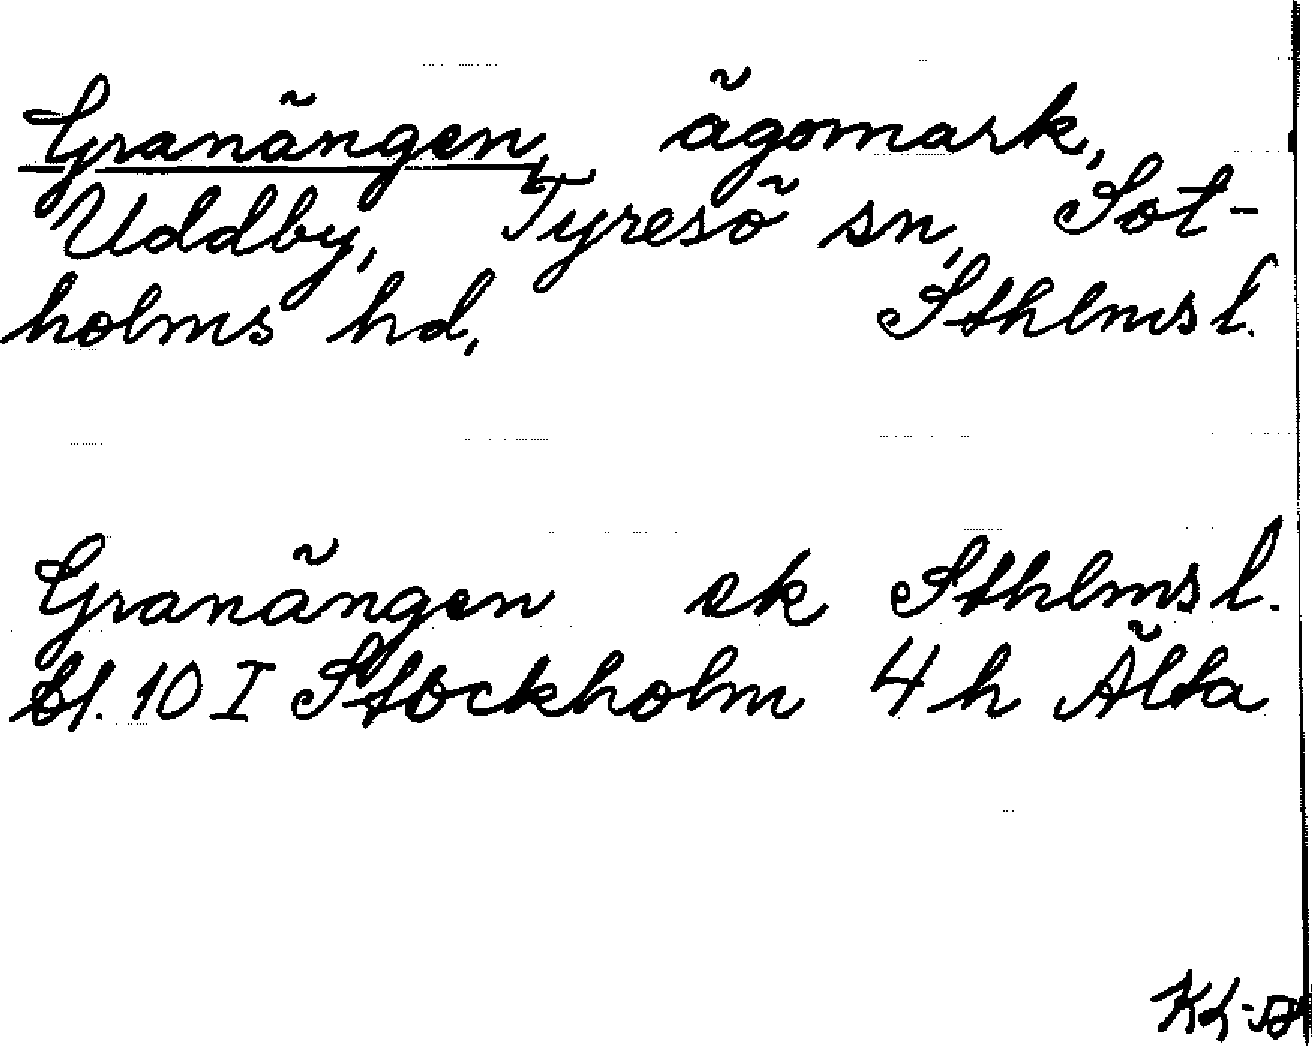 Granängen, ägomark,
Uddby, Tyresö sn, Sot-
holms hd, Sthlms l.
Granängen ek Sthlms l.
bl. 10 I Stockholm 4 h Älta